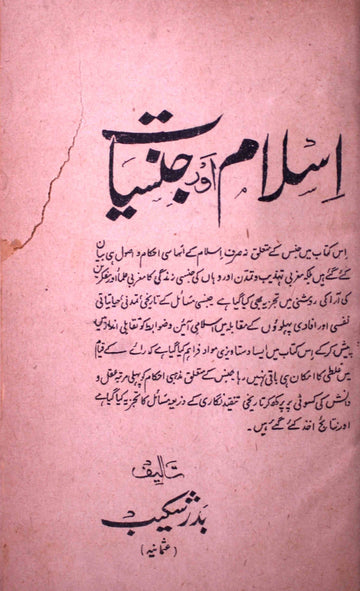 اسلام اور جنسیات
اس کتاب میں جنس کے متعلق نہ صرف اسلام کے اساسی احکام و اصول ہی بیان
کئے گئے ہیں بلکہ مغربی تہذیب و تمدن اور وہاں کی جنسی زندگی کا مغربی علماء و مفکرین
کی آرا کی روشنی میں تجزیہ بھی کیا گیا ہے۔ جنسی مسائل کے تاریخی تمدنی حیاتیاتی
نفسی اور افادی پہلوؤں کے مقابلہ میں اسلامی آئین و ضوابط کو تقابلی انداز میں
پیش کر کے اس کتاب میں ایسا دستاویزی مواد فراہم کیا گیا ہے کہ رائے کے قیام
میں غلطی کا امکان ہی باقی نہیں رہا جنس کے متعلق مذہبی احکام کو پہلی مرتبہ عقل و
دانش کی کسوٹی پر پرکھ کر تاریخی تنقید نگاری کے ذریعہ مسائل کا تجزیہ کیا گیا ہے
اور نتائج اخذ کئے گئے ہیں۔
تالیف
بدر شکیب
(عثمانیہ)